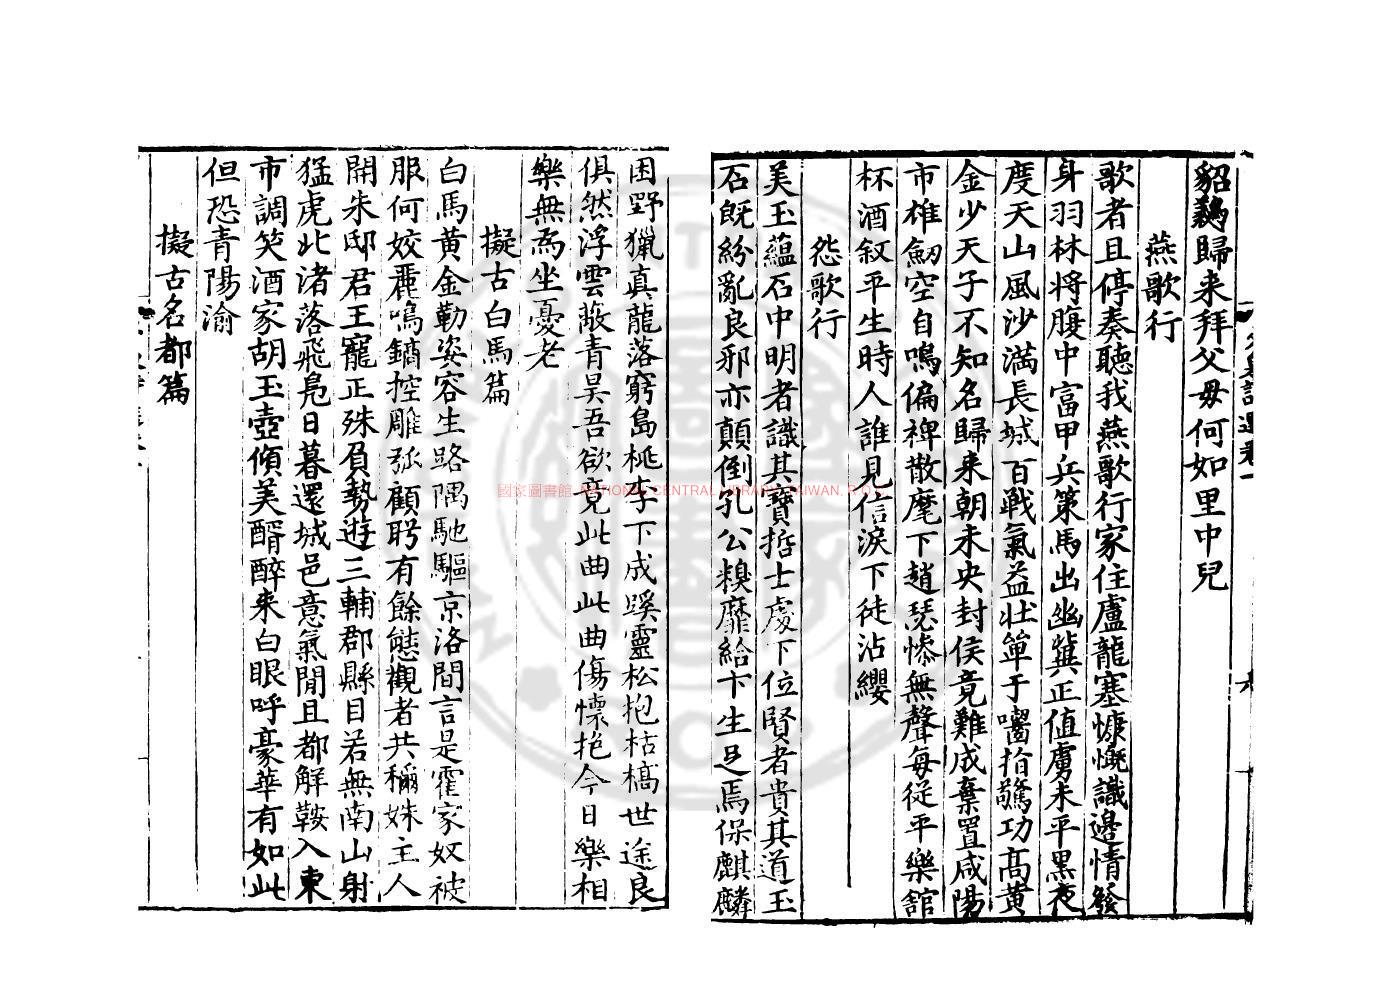 貂鷄歸来拜父毋何如里中兒
燕歌行
歌者且停奏聽我燕歌行家住盧龍塞慷慨識邉情發
身羽林將腹中富甲兵策馬出幽冀正值虜未平黑夜
度天山風沙滿長城百戰氣益壯單于嚙指驚功高黄
金少天子不知名歸来朝未央封侯竟難成棄置咸陽
市雄劒空自鳴偏裨散麾下趙瑟慘無聲每從平樂舘
杯酒叙平生時人誰見信淚下徒沾纓
怨歌行
美玉蘊石中明者識其寶哲士處下位賢者貴其道玉
石既紛亂良邪亦顛倒孔公糗靡給卞生足焉保麒麟
困野獵真龍落窮島桃李下成蹊靈松抱枯槁世途良
俱然浮雲蔽青昊吾欲竟此曲此曲傷懷抱今日樂相
樂無為坐憂老
擬古白馬篇
白馬黄金勒姿容生路隅馳驅京洛間言是霍家奴被
服何姣麗鳴鏑控雕弧顧盻有餘態觀者共稱姝主人
開朱邸君王寵正殊負勢遊三輔郡縣目若無南山射
猛虎北渚落飛鳬日暮還城邑意氣閒且都解鞍入東
市調笑酒家胡玉壺傾美醑醉来白眼呼豪華有如此
但恐青陽渝
擬古名都篇
國家圖書館 NATIONAL CENTRAL LIBRARY, TAIWAN, R.O.C.